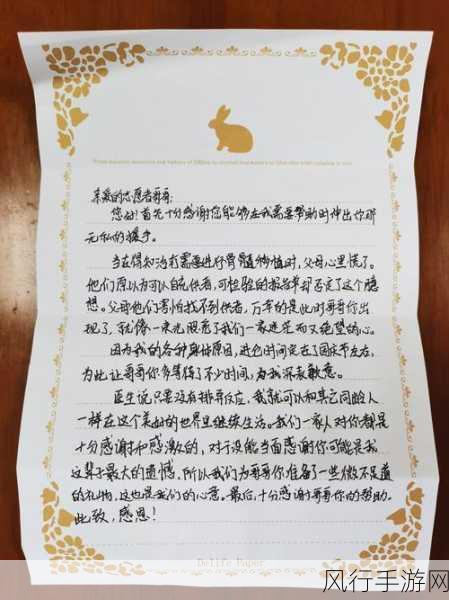 亲爱的志愿者哥哥:
您好!首先十分感谢您能够在我需要帮助时伸出你那
无私的援手。
当在得知治疗需要进行骨髓移植时,父母心里慌了。
他们原以为可以自己供者,可检验的报告单却否定了这个臆
想。父母他们害怕找不到供者,万幸的是此时哥哥你出
现了,就像一束光照亮了我们一家迷茫而又绝望的心。
因为我的各种身体原因,进仓时间定在了国庆节左右,
为此让哥哥你多等待了不少时间,为我深表歉意。
医生说只要没有排异反应,我就可以和其它同龄人
一样在这个美好的世界里继续生活。我们一家人对你都是
十分感谢和感激的,对于没能当面感谢你可能是我
这辈子最大的遗憾。所以我们为哥哥你准备了一些微不足道
的礼物,这也是我们的心意。最后,十分感谢哥哥你的帮助。
此致,感恩!
Delife Paper
风行手游网